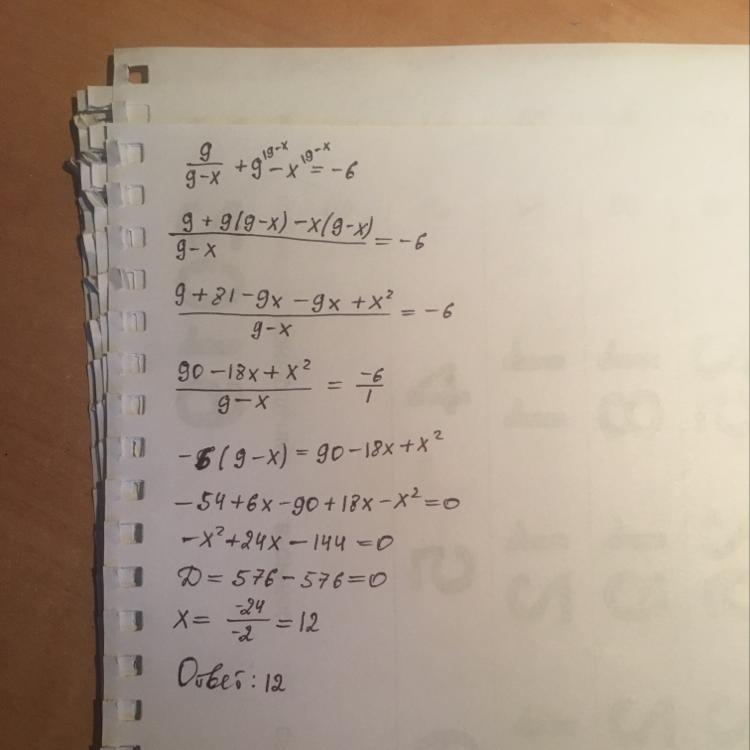 9/(9-x) + 9^{|9-x} - x^{|9-x} = -6
(9 + 9(9-x) - x(9-x))/(9-x) = -6
(9 + 81 - 9x - 9x + x²)/(9-x) = -6
(90 - 18x + x²)/(9-x) = -6/1
-6(9-x) = 90 - 18x + x²
-54 + 6x - 90 + 18x - x² = 0
-x² + 24x - 144 = 0
D = 576 - 576 = 0
x = -24/-2 = 12
Ответ: 12